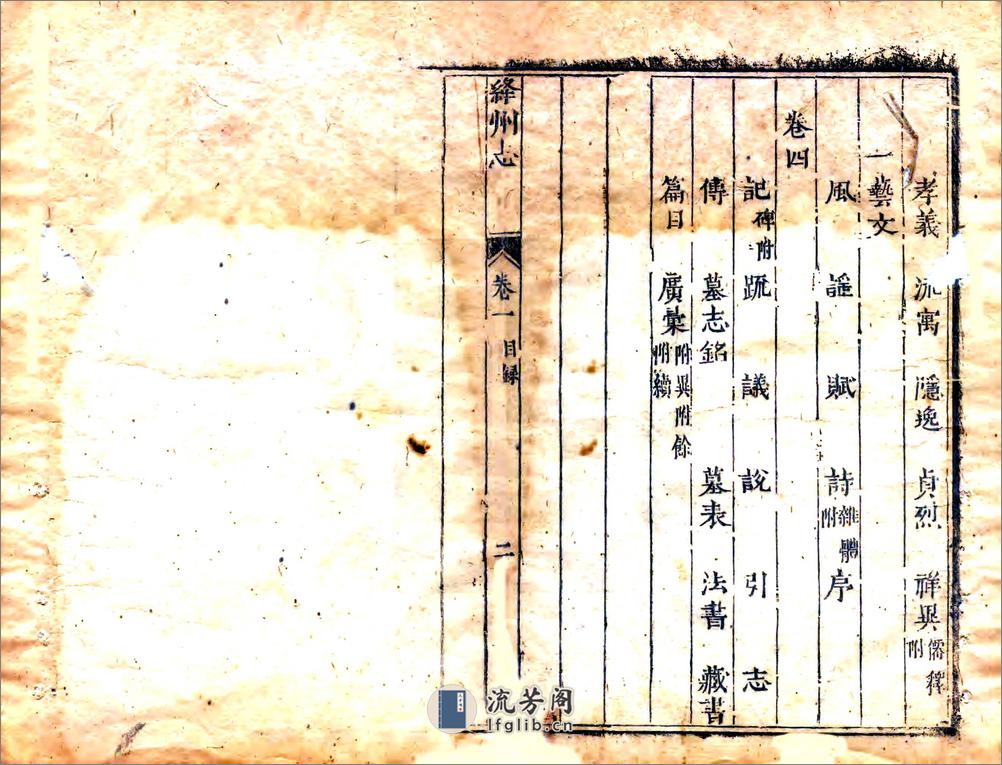 孝義 流寓 隱逸 貞烈 祥異儒釋附
一藝文
風 謡 賦 詩雜體附 序
卷四
記碑附 疏 議 說 引 志
傳 墓志銘 墓表 法書 藏書
篇目 廣彙附異附餘附續
絳州志 卷一 目録 二
流芳阁
lfglib.cn